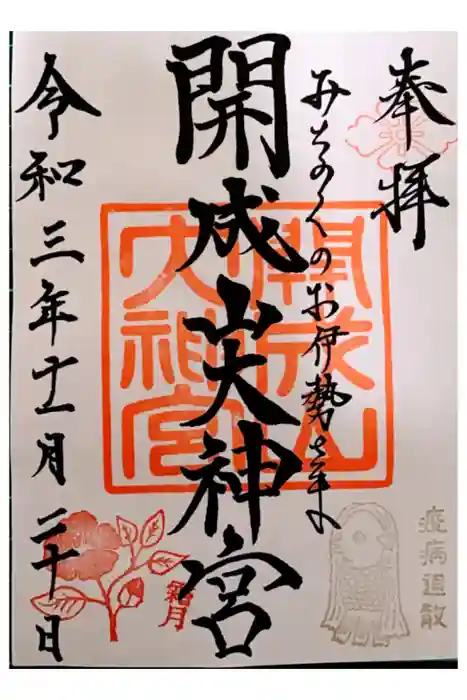 奉拝
みちのくのお伊勢さま
開成山大神宮
開成山
大神宮
令和三年十一月二十日
霜月
疫病退散